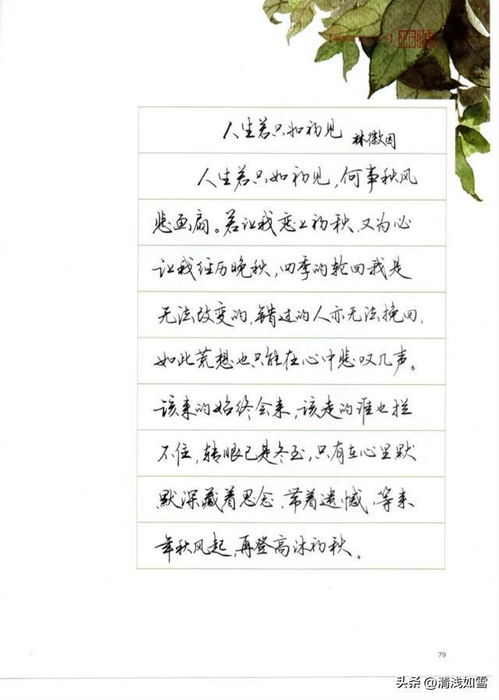 人生若只如初见 林徽因
人生若只如初见,何事秋风
悲画扇。若让我恋上初秋,又为心
让我经历晚秋,四季的轮回我是
无法改变的,错过的人亦无法挽回,
如此荒想也只能在心中悲叹几声。
该来的始终会来,该走的谁也拦
不住,转眼已是冬至,只有在心里默
默深藏着思念,带着遗憾,等来
年秋风起,再登高沐初秋。
79
头条 @清浅如雪